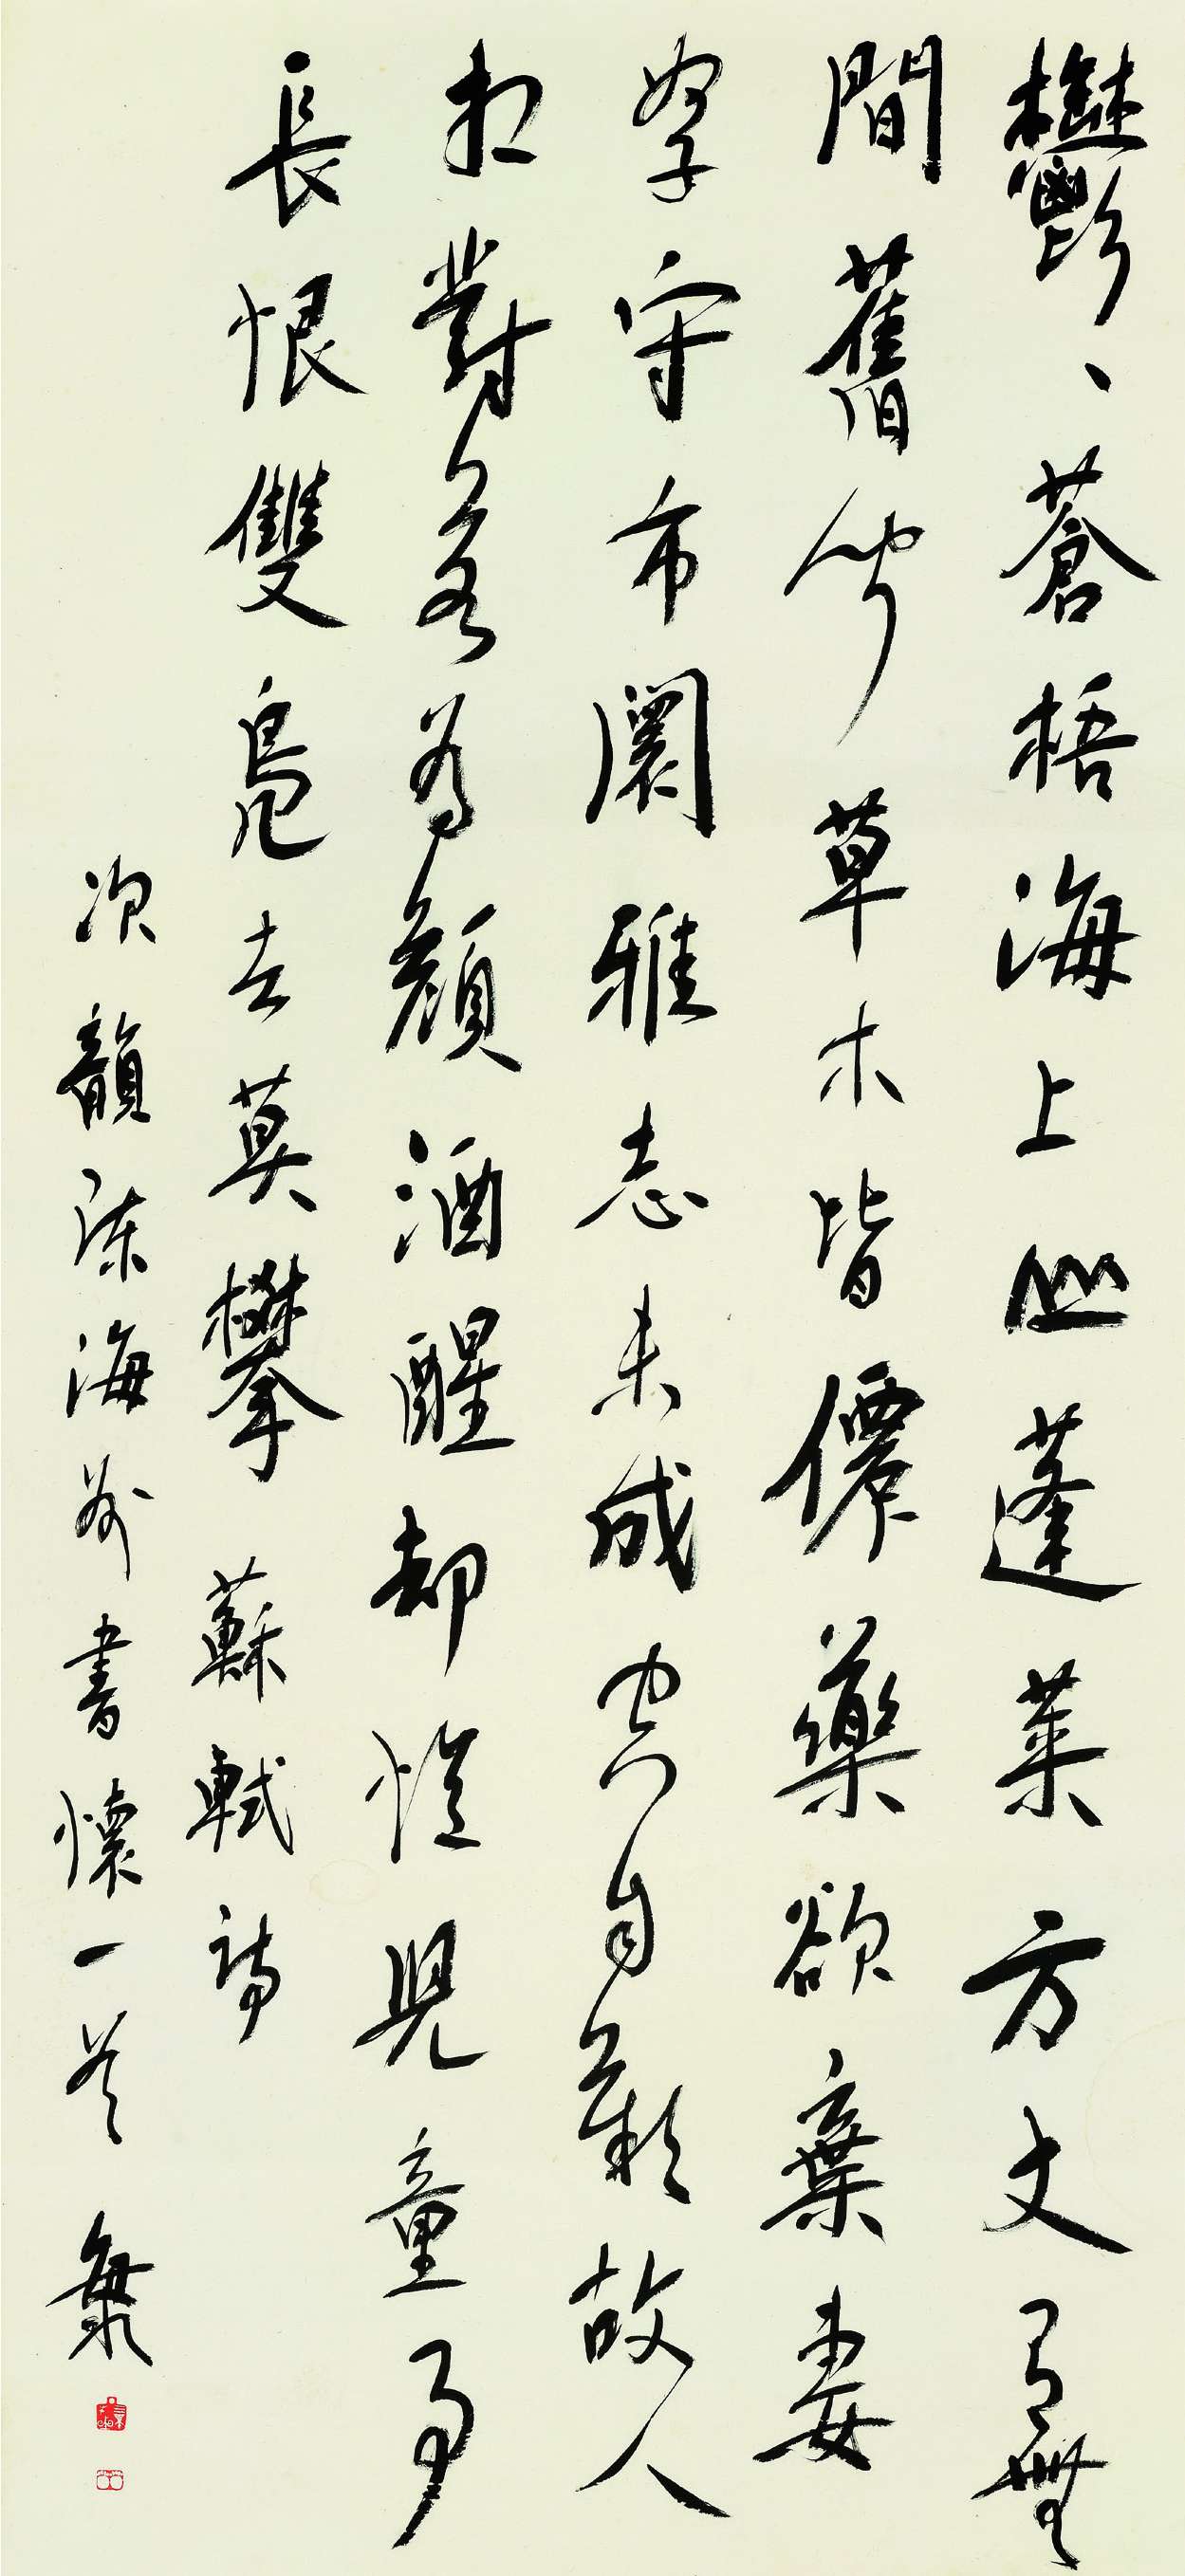 鬱、蒼梧海上山蓬萊方丈有無
間舊聞草木皆僊藥欲棄妻
孥守市闤雅志未成空自歎故人
相對若為顏酒醒却憶兒童事
長恨雙鳧去莫攀 蘇軾詩
次韻陳海州書懷一首